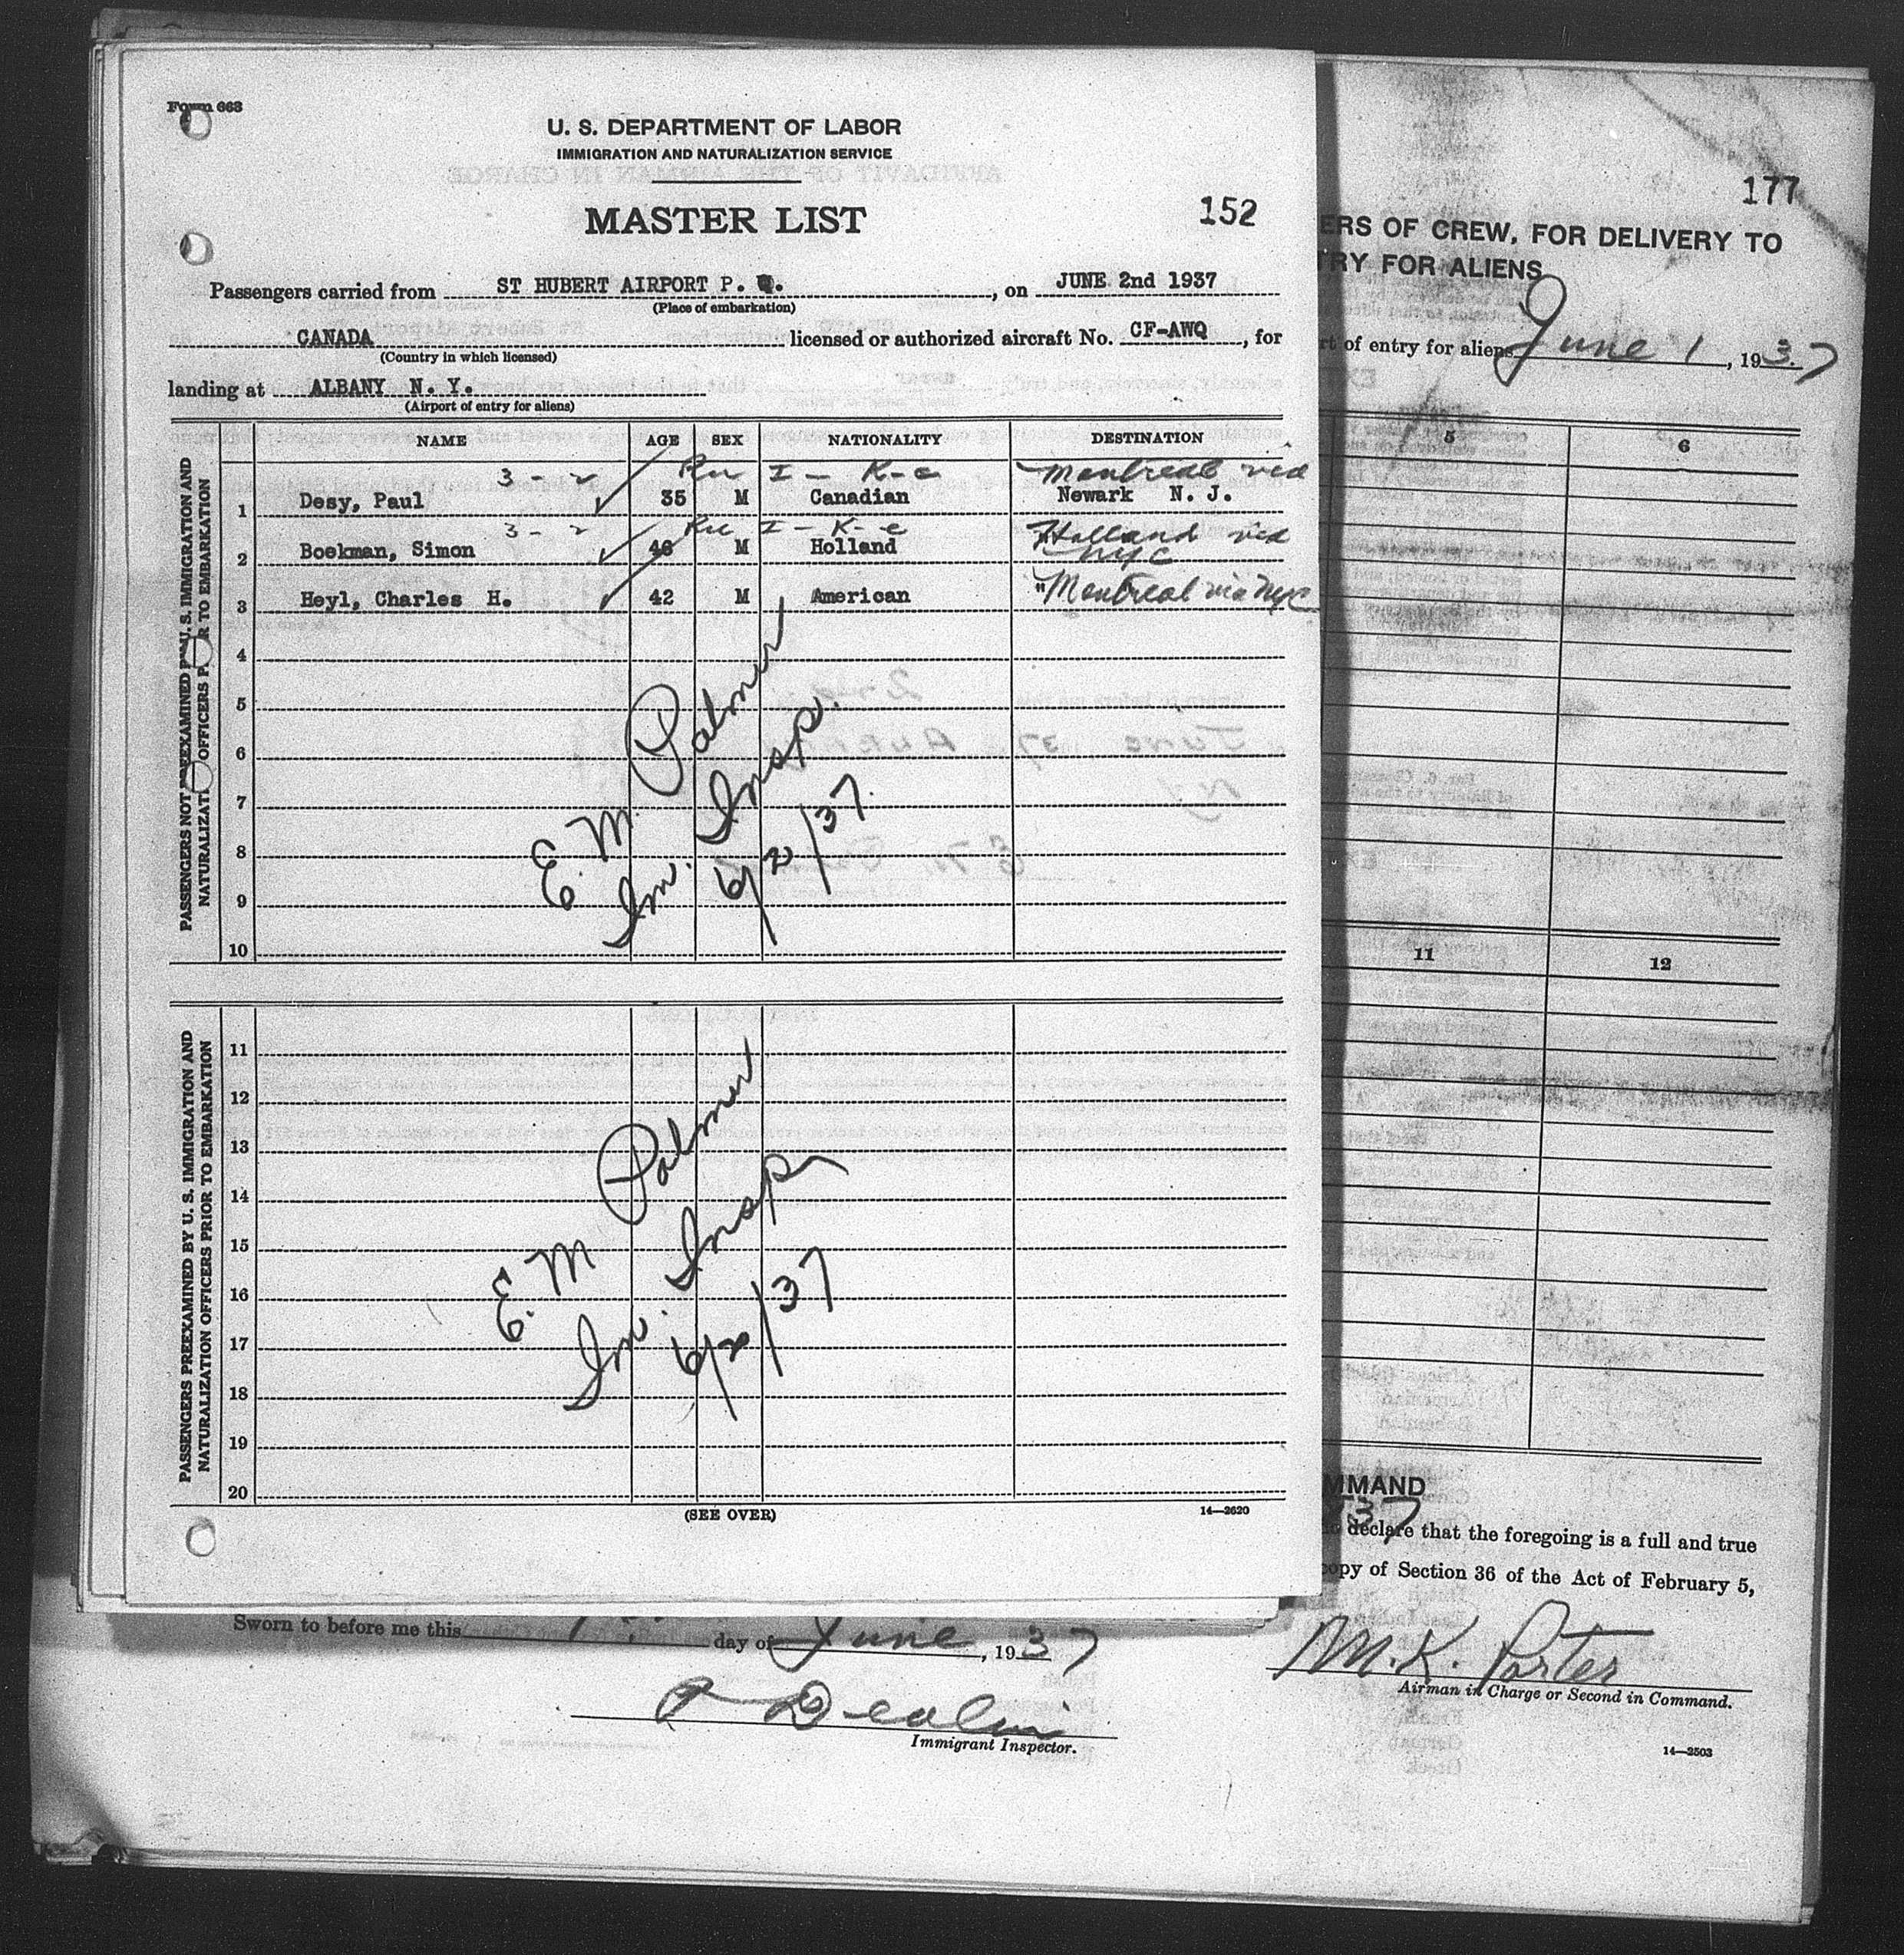 Form 663
U. S. DEPARTMENT OF LABOR
IMMIGRATION AND NATURALIZATION SERVICE
MASTER LIST
152
Passengers carried from ST HUBERT AIRPORT P. Q., on JUNE 2nd 1937
(Place of embarkation)
CANADA licensed or authorized aircraft No. CF-AWQ, for
(Country in which licensed)
landing at ALBANY N. Y.
(Airport of entry for aliens)
NAME AGE SEX NATIONALITY DESTINATION
3 - 2 I - K-c Montreal via
1 Desy, Paul 35 M Canadian Newark N. J.
3 - 2 I - K-c Holland via
2 Boekman, Simon 46 M Holland NYC
3 Heyl, Charles H. 42 M American " Montreal via NYC
4
5
6
7
8
9
10
PASSENGERS NOT PREEXAMINED BY U. S. IMMIGRATION AND
NATURALIZATION OFFICERS PRIOR TO EMBARKATION
E. M. Palmer
Im. Insp.
6/2/37.
11
12
13
14
15
16
17
18
19
20
PASSENGERS PREEXAMINED BY U. S. IMMIGRATION AND
NATURALIZATION OFFICERS PRIOR TO EMBARKATION
E. M Palmer
Im. Insp
6/2/37
(SEE OVER)
14—2620
177
ERS OF CREW, FOR DELIVERY TO
TRY FOR ALIENS
rt of entry for aliens June 1, 1937
5 6
11 12
MMAND
37
declare that the foregoing is a full and true
copy of Section 36 of the Act of February 5,
Sworn to before me this day of June, 1937
M. K. Porter
Airman in Charge or Second in Command.
Immigrant Inspector.
14—2503